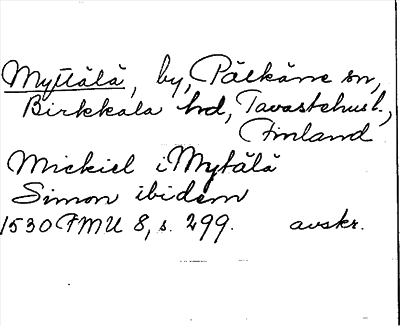 Myttälä, by, Pälkäne sn,
Birkkala hd, Tavastehus l.,
Finland
Mickiel i Mytälä
Simon ibidem
1530 FMU 8, s. 299. avskr.